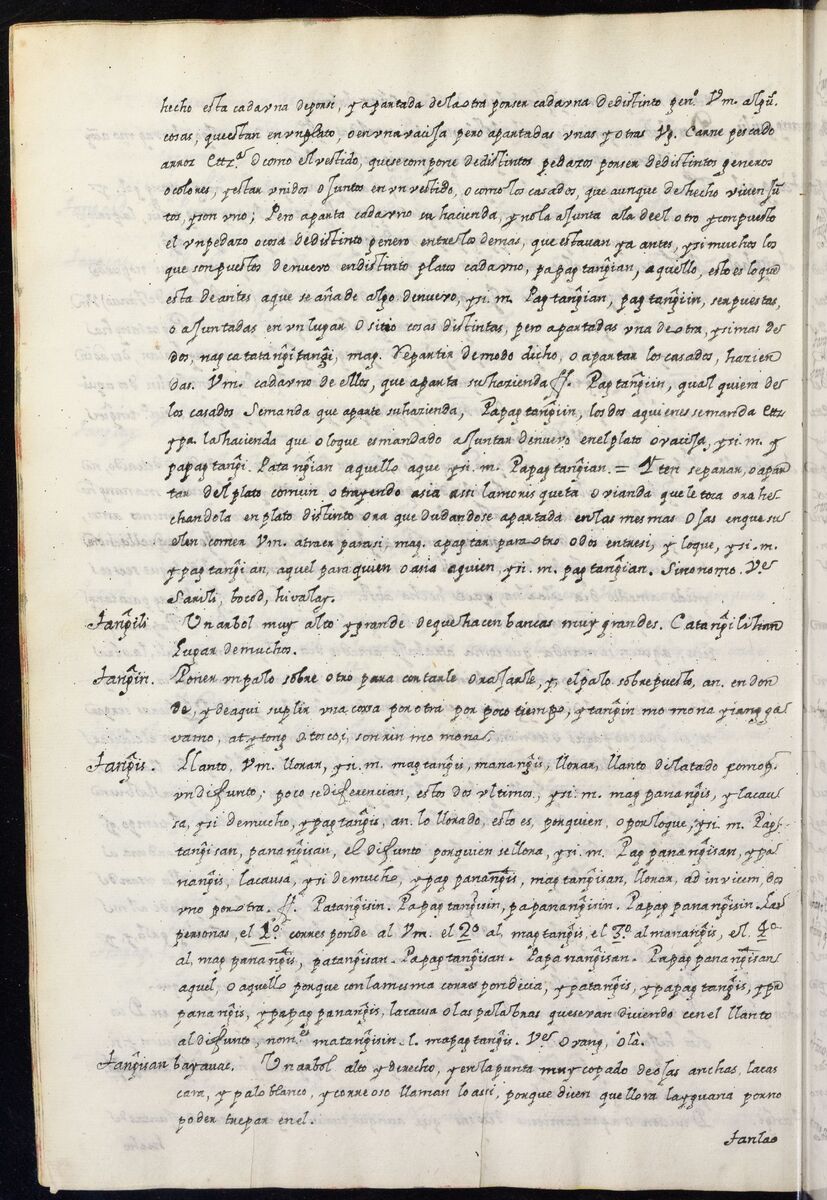 hecho esta cadavna deporsi, y apartada dela otra porser cadavna dedistinto gen.º Vm. algũ.
cosas, que estan en vnplato, o en vna vacija pero apartadas vnas y otras Vg. Carne pescado
arroz Ettz.ª O como el vestido, que se compone dedistintos pedazos porser dedistintos generos
o colores, y estar vnidos o juntos en vn vestido, o como los casados, que aunque de hecho viven jũ
tos, y son vno; Pero aparta cadavno su hacienda, y no la ajunta ala de el otro y compuesto
el vnpedazo o cosa dedistinto genero entre los demas, que estavan ya antes, y si muchos los
que son puestos denuevo en distinto platos cadavno, papagtangĩan, aquello, esto es loque
esta de antes aque se añade algo denuevo, y si. m. Pagtangĩan, pagtangĩin, ser puestas,
o ajuntadas en vn lugar o sitio cosas distintas, pero apartadas vna de otra, y si mas de
dos, nagcatatangĩtangĩ, mag. Repartir demodo dicho, o apartar los casados, hazien
das. Vm. cadavno de ellos, que aparta su hazienda ff. Pagtangĩin, qual quiera de
los casados Semanda que aparte suhazienda, Papagtangĩin, los dos aquienes semanda Ettz
y pa. la hacienda que o loque es mandado ajuntar denuevo en el plato o vacija, y si. m. y
papagtangĩ. Patangĩan aquello aque y si. m. Papagtangĩan. = Yten separar, o apar
tar del plato comun o trayendo asia assi la morisqueta o vianda que le toca ora he
chandola en plato distinto ora que dudandose apartada en las mesmas ojas en que su
elen comer Vm. atraer parasi, mag. apartar para otro o dos entresi, y loque, y si. m.
y pagtangĩan, aquel para quien o asia aquien, y si. m. pagtangĩan. Sinonomo. V.es
Sarili, bocod, hivalay.
Tangĩli Vn arbol muy alto y grande de que hacen bancas muy grandes. Catangĩlihan
Lugar de muchos.
Tangĩin. Poner vn palo sobre otro para cortarle o rajarle, y, el palo sobrepuesto, an. en don
de, y de aqui suplir vna cossa por otra por poco tiempo, y tangĩin mo mona
vamo, at,
Tangĩs. Llanto, Vm. llorar, y si. m. magtangĩs, manangĩs, llorar, llanto dilatado
vn difunto; poco se diferencian, estos dos vltimos, y si. m. magpanangĩs, y la cau
sa, y si de mucho, y pagtangĩs, an. lo llorado, esto es, por quien, o por loque, y si. m. Pag-
tangĩsan, panangĩsan, el difunto por quien se llora, y si. m. Pagpanangĩsan, y pa
nangĩs, la causa, y si de mucho, y pagpanangĩs, magtangĩsan, llorar, ad invicem, dos
vno por otra. ff. Patangĩsin. Papagtangĩsin, papanangĩsin. Papagpanangĩsin. Las
personas, el 1.º corresponde al Vm. el 2.º al magtangĩs, el 3.º al manangĩs, el 4.º
al magpanangĩs, patangĩsan. Papagtangĩsan. Papanangĩsan. Papagpanangĩsan
aquel, o aquello porque con la mesma correspondecia, y patangĩs, y papagtangĩs, y pa
panangĩs, y papagpanangĩs, la causa o las palabras que se van diciendo con el llanto
al difunto, nom.es matangĩsin. l. mapagtangĩs. V.es Oyang, Olâ.
Tangĩsan bayavac. Vn arbol alto y derecho, y en la punta muy copado de ojas anchas, la cas
cara, y palo blanco, y correoso llaman lo assi, porque dicen que llora la yguana por no
poder trepar en el.
Tanlao